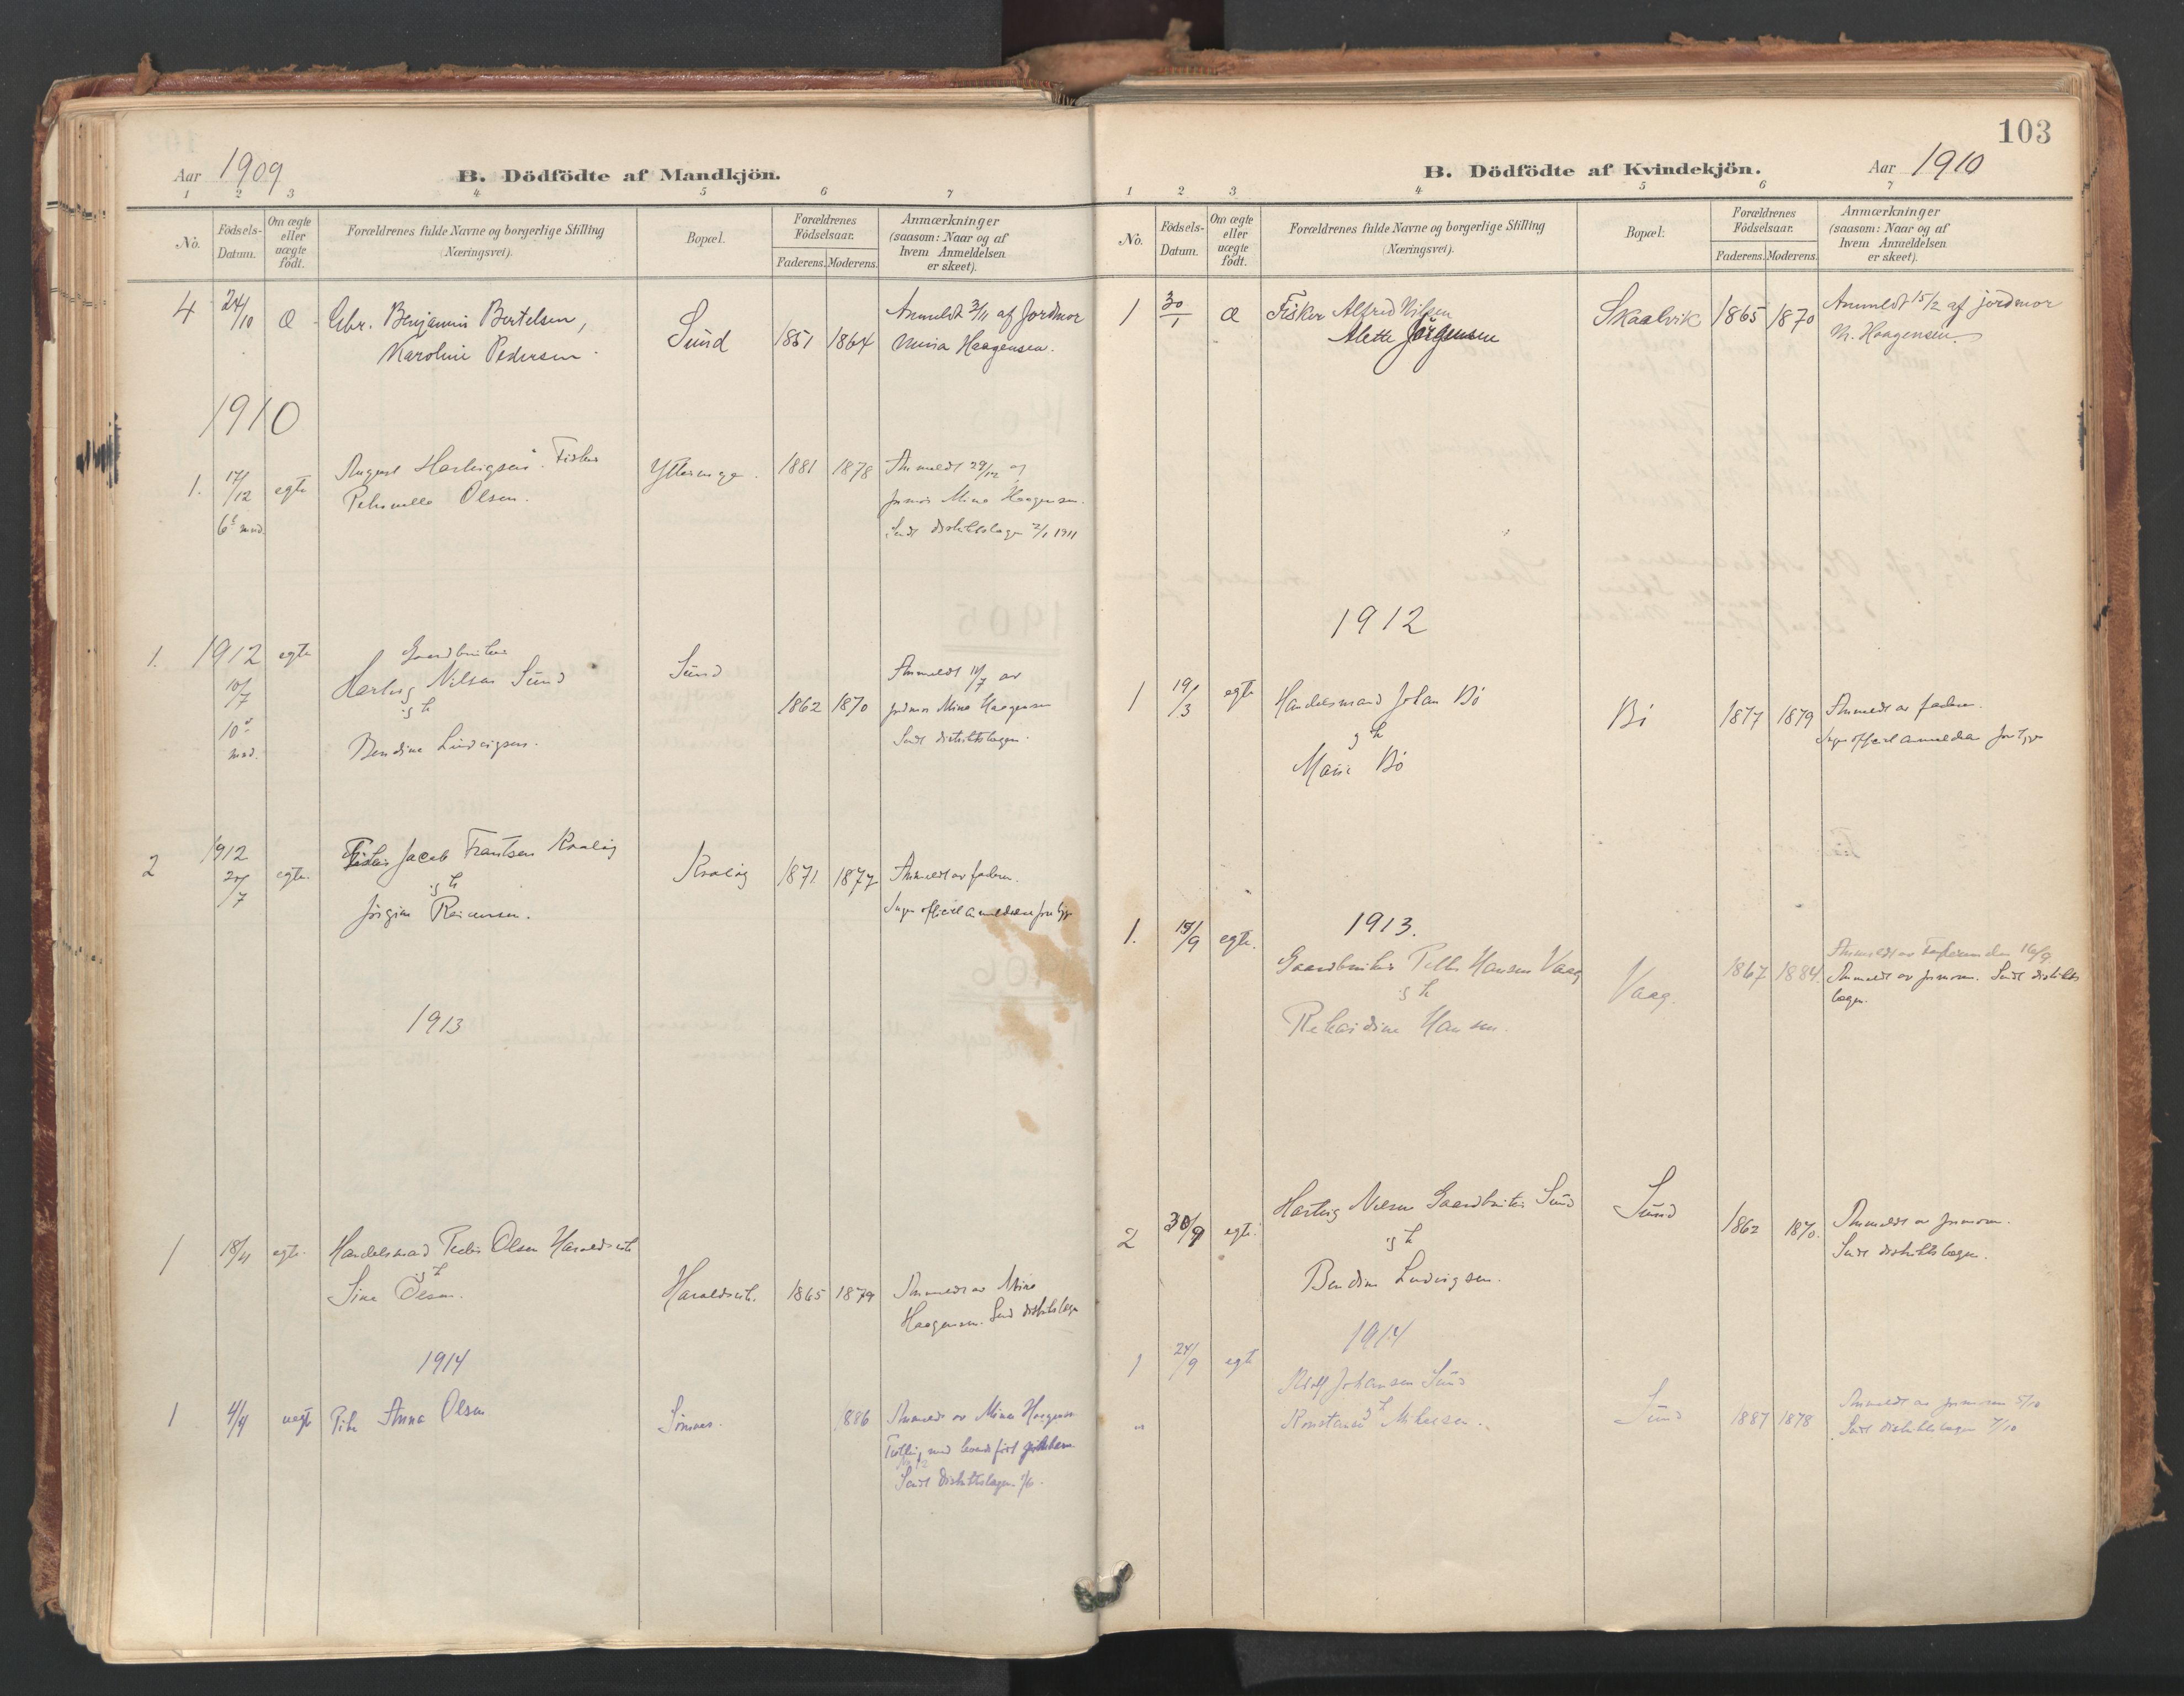 Aar 1909
B. Dödfödte af Mandkjön.
1 2 3 4 5 6 7
No.
Födsels-Datum.
Om ægte eller uægte födt.
Forældrenes fulde Navne og borgerlige Stilling (Næringsvei).
Bopæl.
Forældrenes Födselsaar.
Faderens. Moderens.
Anmærkninger (saasom: Naar og af hvem Anmeldelsen er skeet).
4 24/10 Æ Gbr. Benjamin Bertelsen, Sund 1851 1864 Anmeldt 3/11 af Jordmor
Karoline Pedersen. Mina Haagensen.
1910
1. 17/12 egte August Hartvigsen. Fisker 1881 1878 Anmeldt 29/12 af
6 mnd. Petronelle Olsen. Jormor Mina Haagensen.
Sendt distriktslægen 2/1 1911
1. 1912 egte Gaardbruker Sund
10/7 Hartvig Nilsen Sund 1862 1870 Anmeldt 11/7 av
og h jordmor Mina Haagensen
10 mnd. Bendine Ludvigsen. Sendt distriktslægen.
2 1912 egte. Fisker Jacob Frantsen
20/7 og h 1871 1877 Anmeldt av faderen.
Jørgine Reinersen. Ingen officiel anmeldelse foreligger
1913
1 18/11 egte. Handelsmand Peder Olsen Haraldsvik
og h
Sina Olsen. Haraldsvik. 1865 1879 Anmeldt av Mina
Haagensen. Sendt distriktslægen
1914
1 4/4 uegte Pike Anna Olsen 1886 Anmeldt av Mina Haagensen
Tvilling med levende født
Sendt Distriktslægen
103
B. Dödfödte af Kvindekjön.
Aar 1910
1 2 3 4 5 6 7
No.
Födsels-Datum.
Om ægte eller uægte födt.
Forældrenes fulde Navne og borgerlige Stilling (Næringsvei).
Bopæl.
Forældrenes Födselsaar.
Faderens. Moderens.
Anmærkninger (saasom: Naar og af hvem Anmeldelsen er skeet).
1 30/1 Æ Fisker Alfred Nilsen Skaalvik 1865 1870 Anmeldt 15/2 af jordmor
Alette Jørgensen M. Haagensen.
1912
1 19/3 egte Handelsmand Johan Bø Bø 1877 1879 Anmeldt av faderen.
og h Ingen officiel anmeldelse foreligger
Marie Bø
1913.
1. 15/9 egte. Gaardbruker Hansen Vaag Vaag. 1867 1884. Anmeldt av 16/9.
og h Anmeldt av jormoren. Sendt distrikts
Hansen. lægen.
2 30/9 egte. Hartvig Nilsen Gaardbruker Sund Sund 1862 1870. Anmeldt av jormoren.
og h Sendt distriktslægen.
Bendine Ludvigsen.
1914
1 24/9 egte Johansen Sund Sund 1887 1878 Anmeldt av jormoren 5/10
og h Sendt distriktslægen 7/10
Mikelsen.